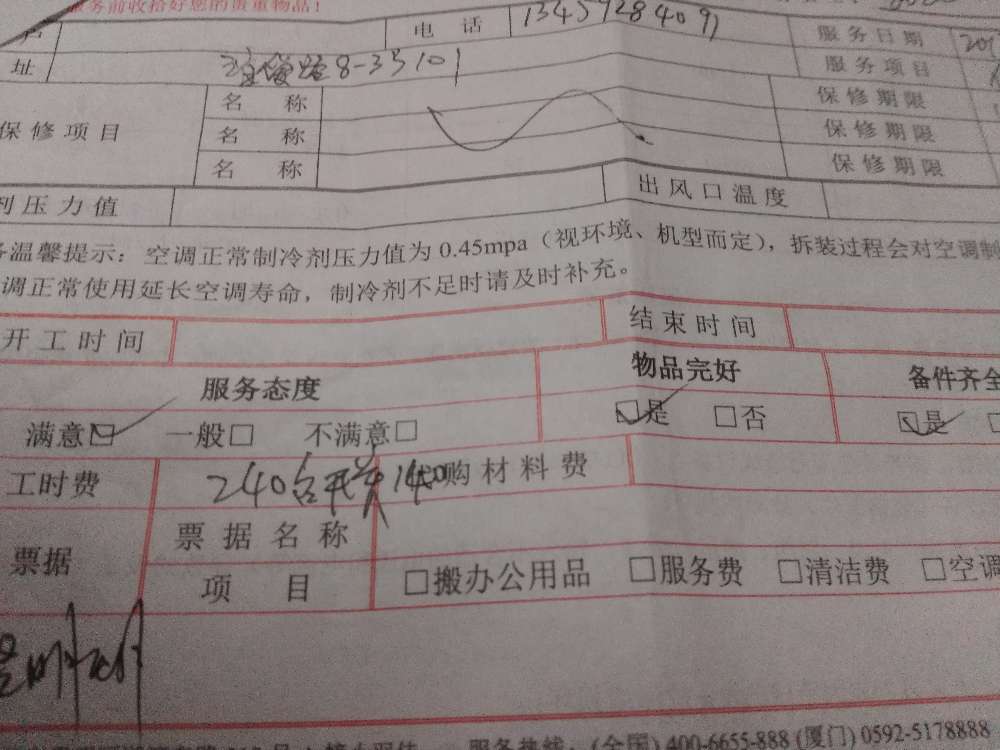 服务前收拾好您的贵重物品！
户 电 话 13459284091 服务日期 201
址 8-35101 服务项目
保修项目 名 称 保修期限
名 称 保修期限
名 称 保修期限
剂压力值 出风口温度
务温馨提示：空调正常制冷剂压力值为 0.45mpa（视环境、机型而定），拆装过程会对空调制
调正常使用延长空调寿命，制冷剂不足时请及时补充。
开工时间 结束时间
服务态度 物品完好 备件齐全
满意☑ 一般□ 不满意□ ☑是 □否 ☑是
工时费 240 购材料费
票据 票据名称
项 目 □搬办公用品 □服务费 □清洁费 □空调
服务热线：(全国) 400-6655-888 (厦门) 0592-5178888